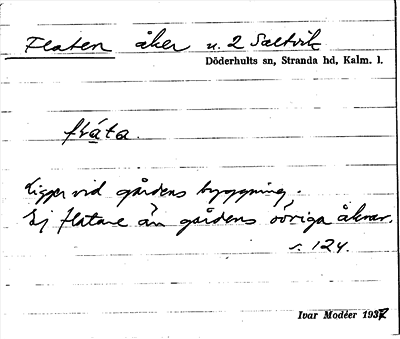 Flaten åker n. 2 Saltvik
Döderhults sn, Stranda hd, Kalm. l.
fláta.
Ligger vid gårdens byggning.
Ej flatare än gårdens övriga åkrar.
s. 124.
Ivar Modéer 1937